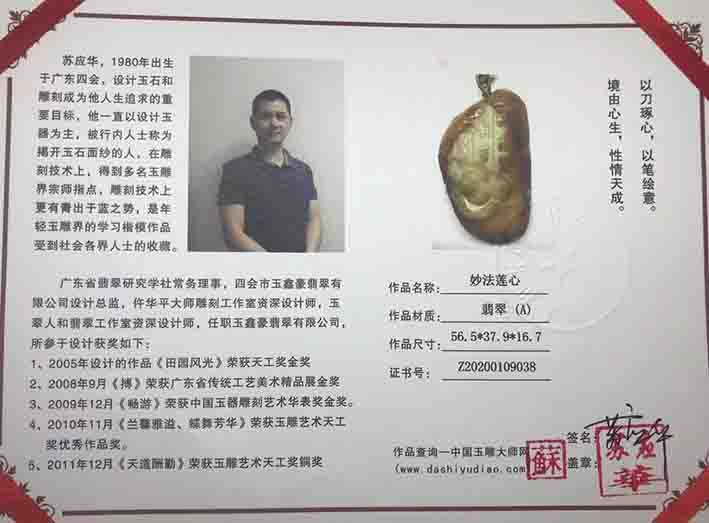 苏应华，1980年出生
于广东四会，设计玉石和
雕刻成为他人生追求的重
要目标，他一直以设计玉
器为主，被行内人士称为
揭开玉石面纱的人，在雕
刻技术上，得到多名玉雕
界宗师指点，雕刻技术上
更有青出于蓝之势，是年
轻玉雕界的学习楷模作品
受到社会各界人士的收藏。
以刀琢心，以笔绘意。
境由心生，性情天成。
广东省翡翠研究学社常务理事，四会市玉鑫豪翡翠有
限公司设计总监，仵华平大师雕刻工作室资深设计师，玉
翠人和翡翠工作室资深设计师，任职玉鑫豪翡翠有限公司，
所参于设计获奖如下：
1、2005年设计的作品《田园风光》荣获天工奖金奖
2、2008年9月《搏》荣获广东省传统工艺美术精品展金奖
3、2009年12月《畅游》荣获中国玉器雕刻艺术华表奖金奖。
4、2010年11月《兰馨雅溢、蝶舞芳华》荣获玉雕艺术天工
奖优秀作品奖。
5、2011年12月《天道酬勤》荣获玉雕艺术天工奖铜奖
作品名称： 妙法莲心
作品材质： 翡翠（A）
作品尺寸： 56.5*37.9*16.7
证书号： Z20200109038
签名： 苏应华
作品查询一中国玉雕大师网
(www.dashiyudiao.com)
蘇
盖章：